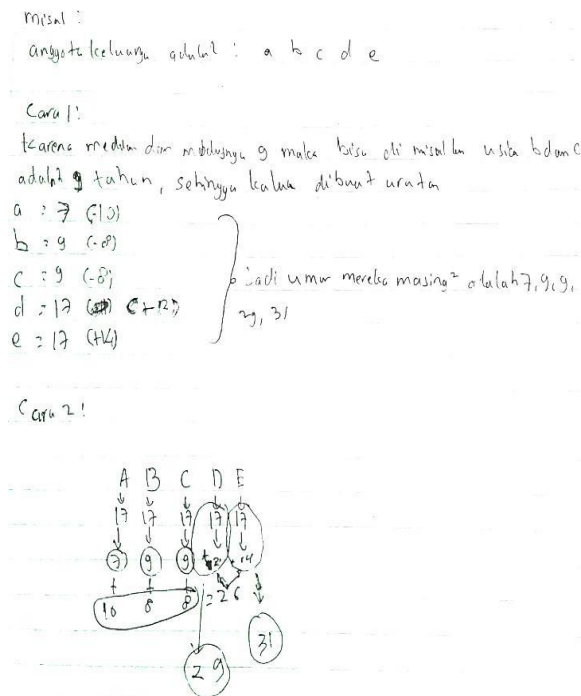 misal :
anggota keluarga adalah² : a b c d e
Cara 1:
Karena median dan modusnya 9 maka bisa di misalkan usia b dan c
adalah 9 tahun, sehingga kalua dibuat urutan
a : 7 (-10)
b : 9 (-8)
c : 9 (-8)
d : 17 (+12)
e = 17 (+14)
Jadi umur mereka masing² adalah 7, 9, 9,
29, 31
Cara 2:
A B C D E
17 17 17 17 17
7 9 9 +12 +14
10 8 8 = 26
31
29